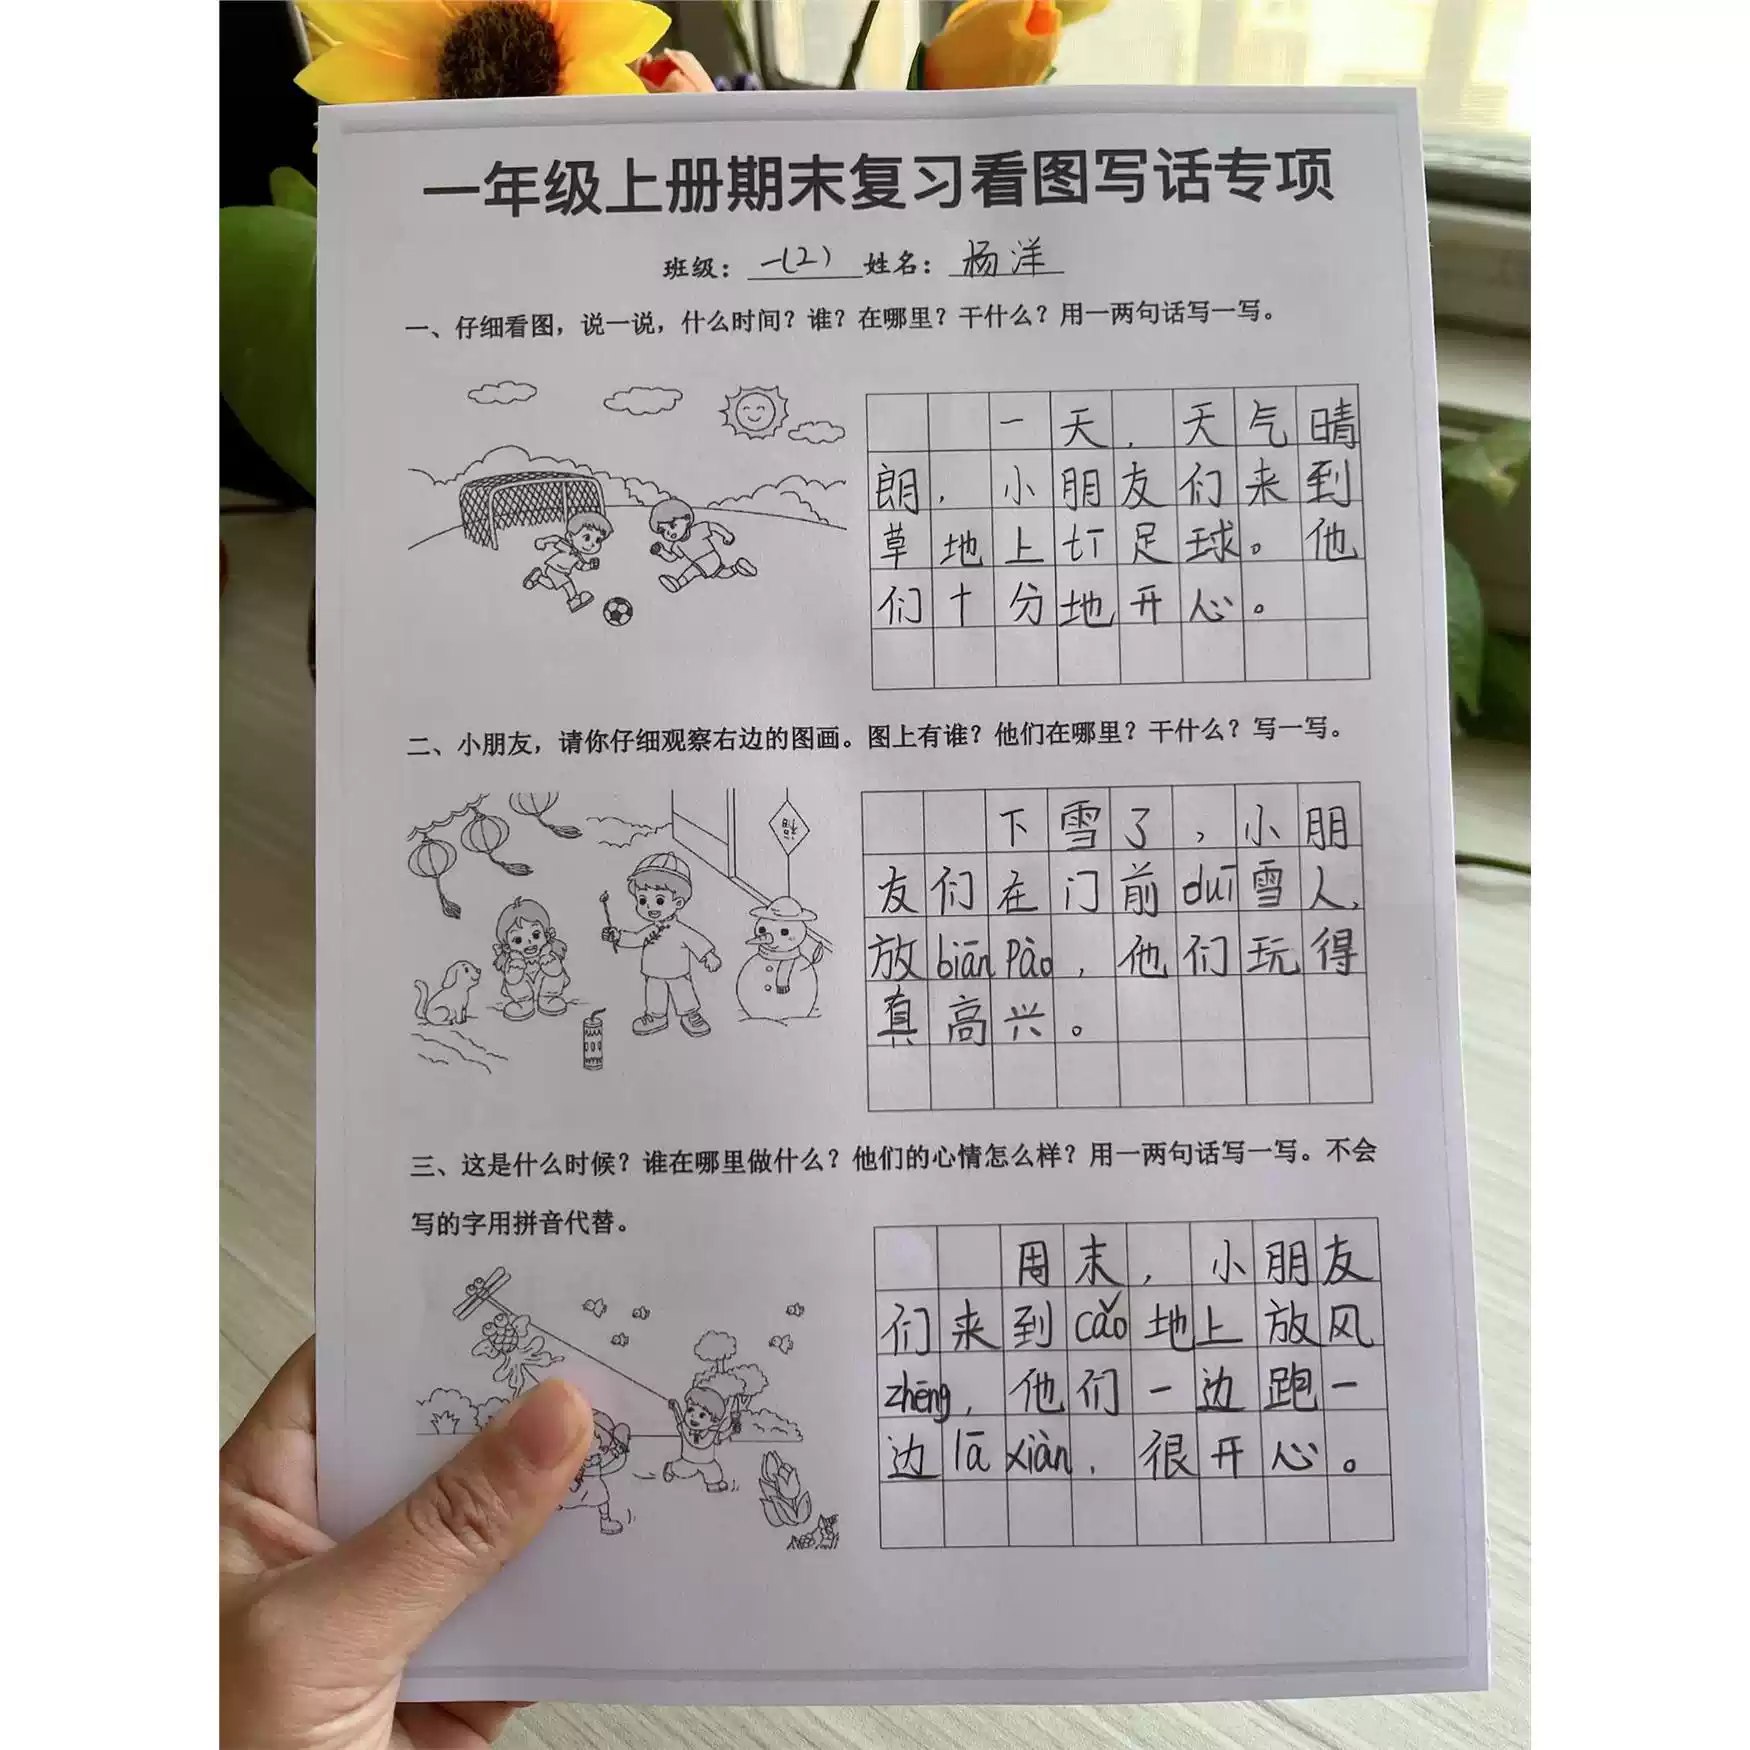 一年级上册期末复习看图写话专项
班级：一(2) 姓名：杨洋
一、仔细看图，说一说，什么时间？谁？在哪里？干什么？用一两句话写一写。
一天，天气晴
朗，小朋友们来到
草地上tī足球。他
们十分地开心。
二、小朋友，请你仔细观察右边的图画。图上有谁？他们在哪里？干什么？写一写。
福
下雪了，小朋
友们在门前duī雪人，
放biān pào，他们玩得
真高兴。
三、这是什么时候？谁在哪里做什么？他们的心情怎么样？用一两句话写一写。不会
写的字用拼音代替。
周末，小朋友
们来到cǎo地上放风
zhēng，他们一边跑一
边lā xiàn，很开心。